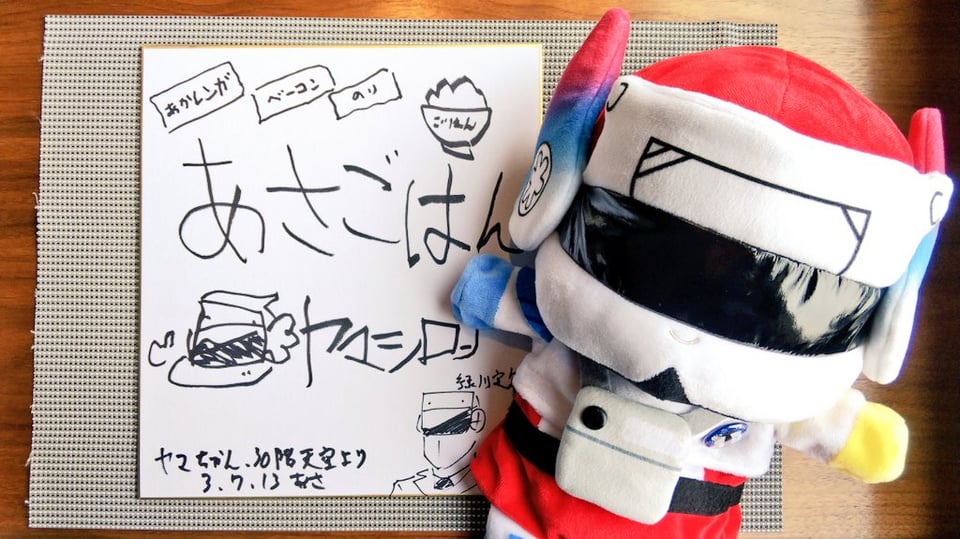 あかレンガ
ベーコン
のり
ごはん
あさごはん
ヤマシロン
緑川定
ヤマちゃん、30階天空より
3.7.13 あさ